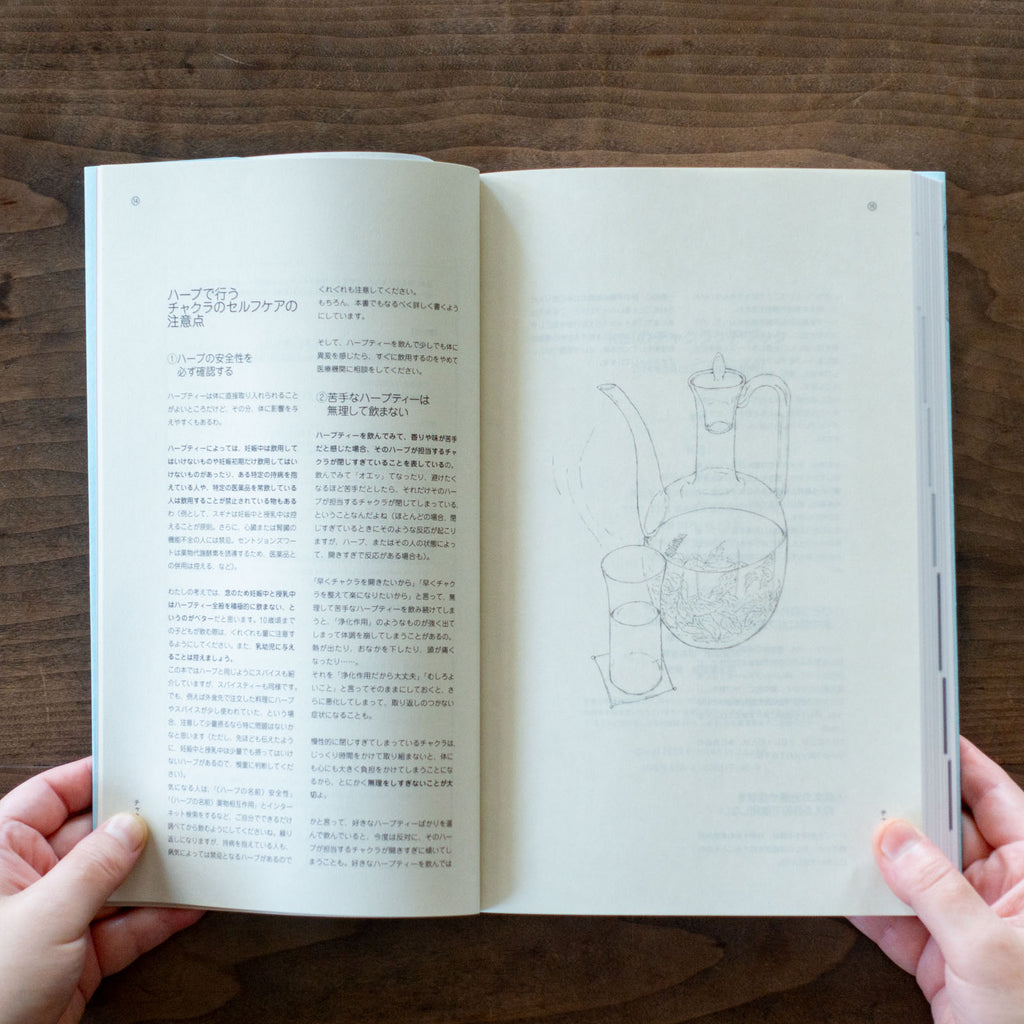 14
ハーブで行う
チャクラのセルフケアの
注意点
①ハーブの安全性を
必ず確認する
ハーブティーは体に直接取り入れられること
がよいところだけど、その分、体に影響を与
えやすくもあるわ。
ハーブティーによっては、妊娠中は飲用して
はいけないものや妊娠初期だけ飲用してはい
けないものがあったり、ある特定の持病を抱
えている人や、特定の医薬品を常飲している
人は飲用することが禁止されている物もある
わ（例として、スギナは妊娠中と授乳中は控
えることが原則。さらに、心臓または腎臓の
機能不全の人には禁忌。セントジョンズワー
トは薬物代謝酵素を誘導するため、医薬品と
の併用は控える、など）。
わたしの考えでは、念のため妊娠中と授乳中
はハーブティー全般を積極的に飲まない、と
いうのがベターだと思います。10歳頃まで
の子どもが飲む際は、くれぐれも量に注意す
るようにしてください。また、乳幼児に与え
ることは控えましょう。
この本ではハーブと同じようにスパイスも紹
介していますが、スパイスティーも同様です。
でも、例えば外食先で注文した料理にハーブ
やスパイスが少し使われていた、という場
合、注意して少量摂るなら特に問題はないか
なと思います（ただし、先ほども伝えたよう
に、妊娠中と授乳中は少量でも摂ってはいけ
ないハーブがあるので、慎重に判断してくだ
さい）。
気になる人は、「〈ハーブの名前〉 安全性」
「〈ハーブの名前〉 薬物相互作用」とインター
ネット検索をするなど、ご自分でできるだけ
調べてから飲むようにしてくださいね。繰り
返しになりますが、持病を抱えている人も、
病気によっては禁忌となるハーブがあるので
くれぐれも注意してください。
もちろん、本書でもなるべく詳しく書くよう
にしています。
そして、ハーブティーを飲んで少しでも体に
異変を感じたら、すぐに飲用するのをやめて
医療機関に相談をしてください。
②苦手なハーブティーは
無理して飲まない
ハーブティーを飲んでみて、香りや味が苦手
だと感じた場合、そのハーブが担当するチャ
クラが閉じすぎていることを表しているの。
飲んでみて「オエッ」てなったり、避けたく
なるほど苦手だとしたら、それだけそのハー
ブが担当するチャクラが閉じてしまっている、
ということなんだよね（ほとんどの場合、閉
じすぎているときにそのような反応が起こり
ますが、ハーブ、またはその人の状態によっ
て、開きすぎで反応がある場合も）。
「早くチャクラを開きたいから」「早くチャク
ラを整えて楽になりたいから」と言って、無
理して苦手なハーブティーを飲み続けてしま
うと、「浄化作用」のようなものが強く出て
しまって体調を崩してしまうことがあるの。
熱が出たり、おなかを下したり、頭が痛く
なったり……。
それを「浄化作用だから大丈夫」「むしろよ
いこと」と言ってそのままにしておくと、さ
らに悪化してしまって、取り返しのつかない
症状になることも。
慢性的に閉じすぎてしまっているチャクラは、
じっくり時間をかけて取り組まないと、体に
も心にも大きく負担をかけてしまうことにな
るから、とにかく無理をしすぎないことが大
切よ。
かと言って、好きなハーブティーばかりを選
んで飲んでいると、今度は反対に、そのハー
ブが担当するチャクラが開きすぎに傾いてし
まうことも。好きなハーブティーを飲んでは
15